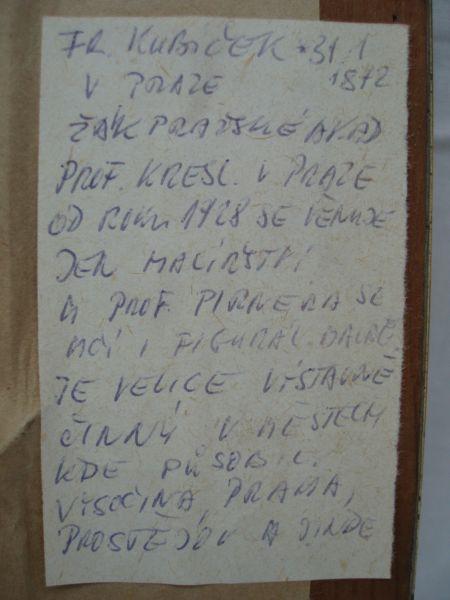 FR. KUBÍČEK *31.1
V PRAZE 1872
ŽÁK PRAŽSKÉ AKAD
PROF. KRESL. V PRAZE
OD ROKU 1928 SE VĚNUJE
JEN MALÍŘSTVÍ
U PROF. PIRNERA SE
UČÍ I FIGURÁL.
JE VELICE VÝSTAVNĚ
ČINNÝ V MĚSTECH
KDE PŮSOBIL.
VYSOČINA, PRAHA,
PROSTĚJOV A JINDE